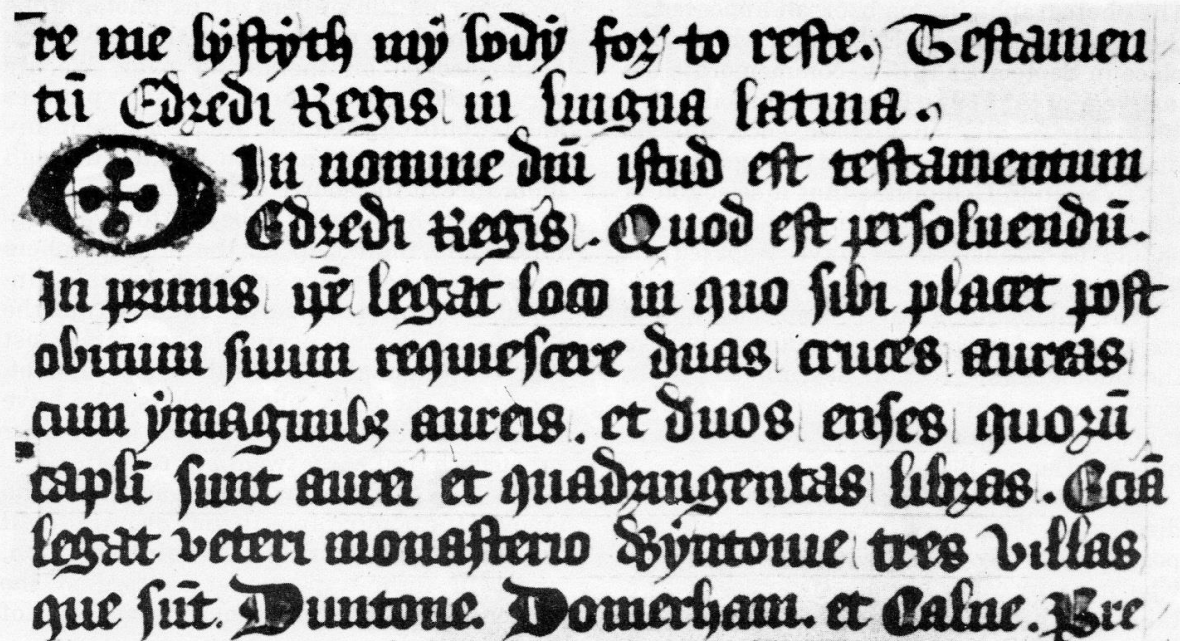 re me lyſtyth my body for to reſte. Teſtamen
tū Edredi Regis in lingua latina.
In nomine dn̄i iſtud eſt teſtamentum
Edredi Regis. Quod eſt perſoluendū.
In primis ip̄e legat loco in quo ſibi placet poſt
obitum ſuum requieſcere duas cruces aureas
cum ymaginibꝫ aureis. et duos enſes quorū
capli ſunt aurei et quadringentas libras. Eciā
legat veteri monaſterio Wyntonie tres villas
que ſūt. Duntone. Domerham. et Calne. Pre